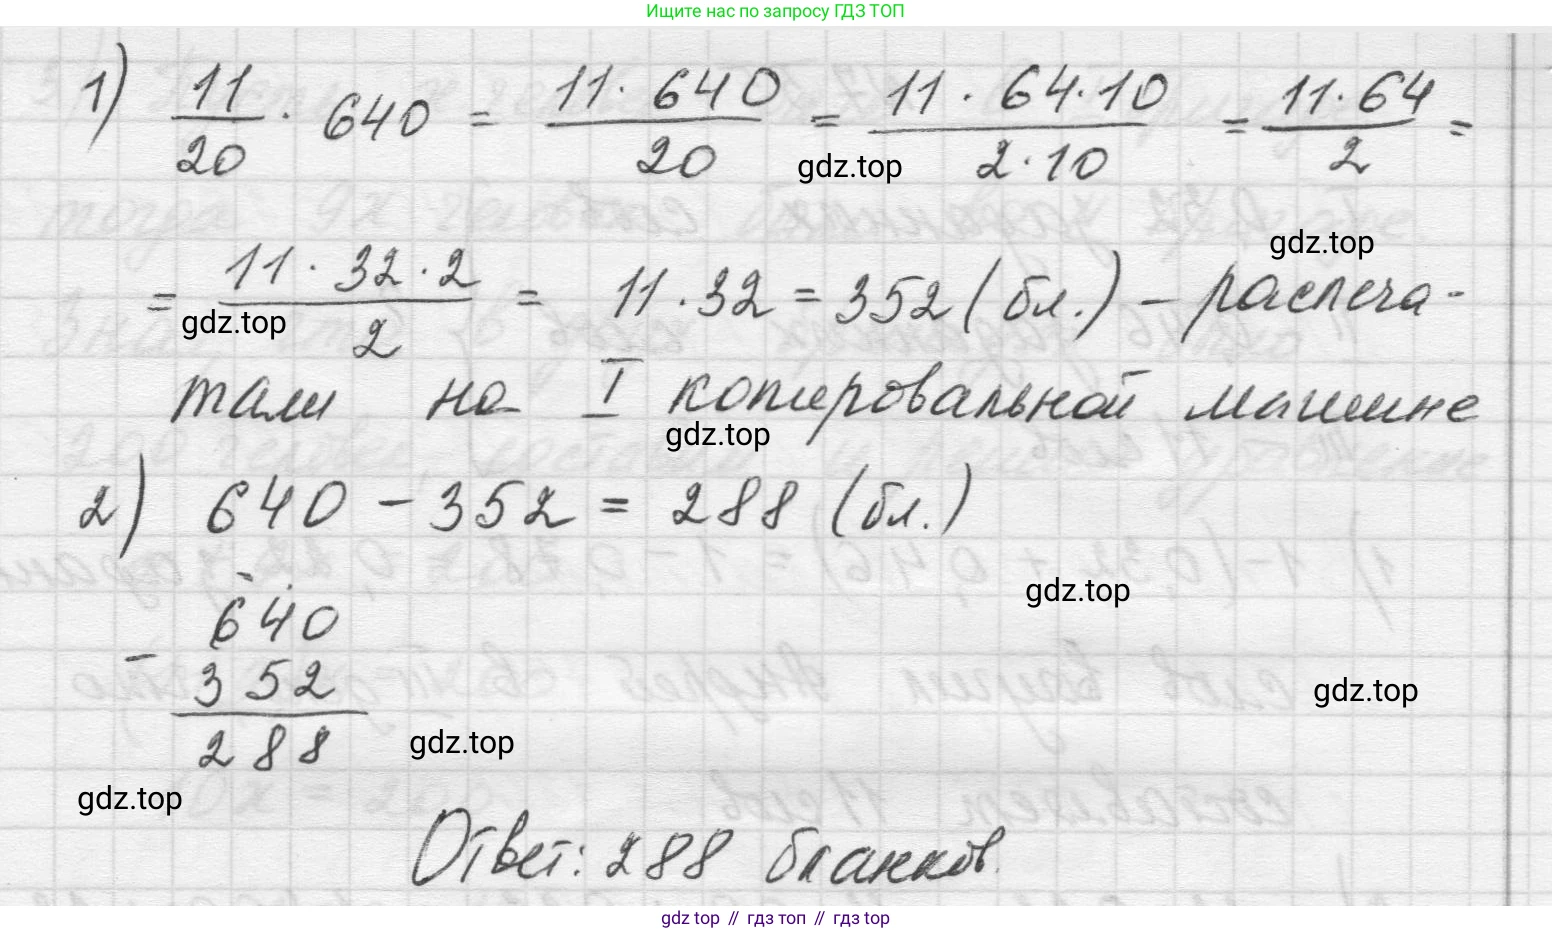 Ищите нас по запросу ГДЗ ТОП
1) 11/20 · 640 = 11 · 640/20 = 11 · 64 · 10/2 · 10 = 11 · 64/2 =
gdz.top
gdz.top
= 11 · 32 · 2/2 = 11 · 32 = 352 (бл.) – распеча-
gdz.top
тали на I копировальной машине
gdz.top
2) 640 – 352 = 288 (бл.)
gdz.top
640
– 352
288
gdz.top
gdz.top
gdz.top
Ответ: 288 бланков.
gdz top // гдз топ // gdz top